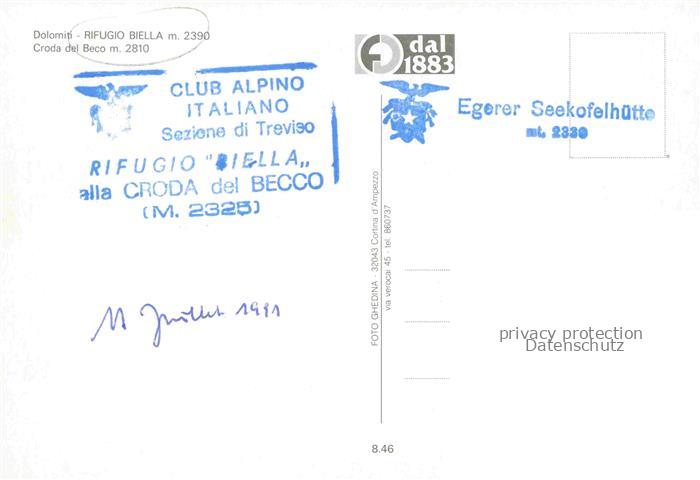 Dolomiti - RIFUGIO BIELLA m. 2390
Croda del Beco m. 2810
CLUB ALPINO
ITALIANO
Sezione di Treviso
RIFUGIO "BIELLA„
alla CRODA del BECCO
(M. 2325)
11 Juillet 1991
dal
1883
Egerer Seekofelhütte
mt. 2330
FOTO GHEDINA - 32043 Cortina d'Ampezzo
via verocai 45 - tel. 860737
privacy protection
Datenschutz
8.46